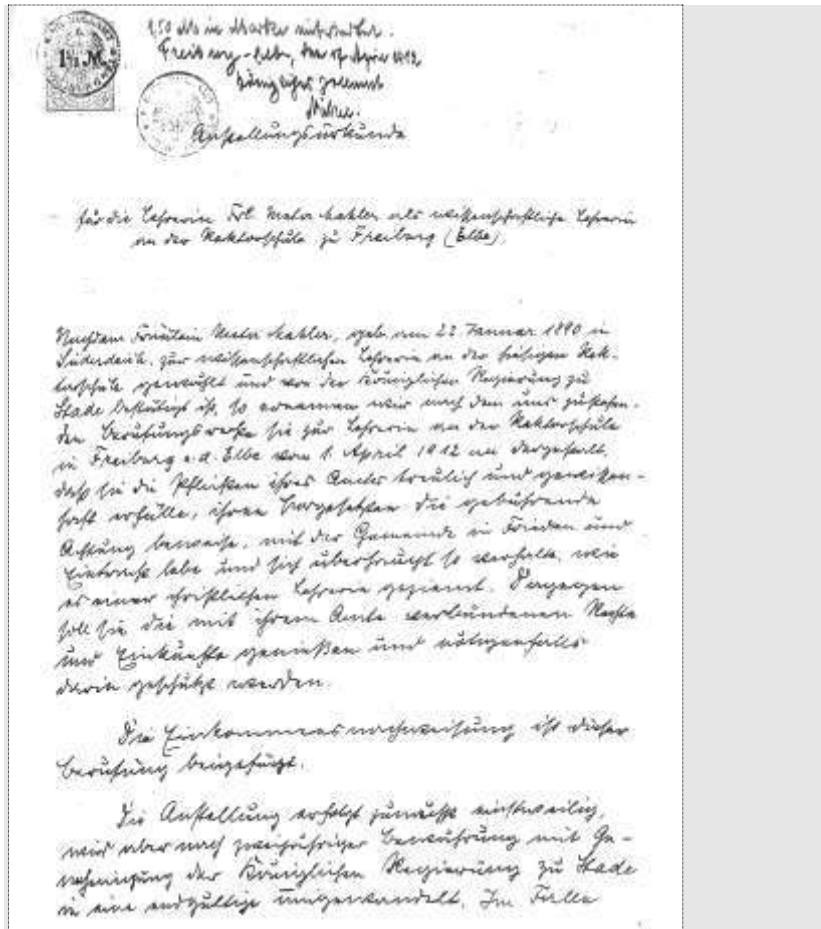 1½ M.
1,50 M in Marken
Freiburg-Elbe, den 17 April 1912
Königliches Zollamt
Anstellungsurkunde
für die Lehrerin Frl. Meta Kahler als wissenschaftliche Lehrerin
an der Rektorschule zu Freiburg (Elbe).
Nachdem Fräulein Meta Kahler, geb. am 22 Januar 1890 in
Süderdeich, zur wissenschaftlichen Lehrerin an der hiesigen Rek-
torschule gewählt und von der Königlichen Regierung zu
Stade bestätigt ist, so ernennen wir nach dem uns zustehen-
den Berufungsrechte sie zur Lehrerin an der Rektorschule
in Freiburg a. d. Elbe vom 1. April 1912 an dergestalt,
daß sie die Pflichten ihres Amtes treulich und gewissen-
haft erfülle, ihren Vorgesetzten die gebührende
Achtung beweise, mit der Gemeinde in Frieden und
Eintracht lebe und sich überhaupt so verhalte, wie
es einer christlichen Lehrerin geziemt. Dagegen
soll sie die mit ihrem Amte verbundenen Rechte
und Einkünfte genießen und nötigenfalls
darin geschützt werden.
Die Einkommensnachweisung ist dieser
Berufung beigefügt.
Die Anstellung erfolgt zunächst einstweilig,
wird aber nach zweijähriger Bewährung mit Ge-
nehmigung der Königlichen Regierung zu Stade
in eine endgültige umgewandelt. Im Falle